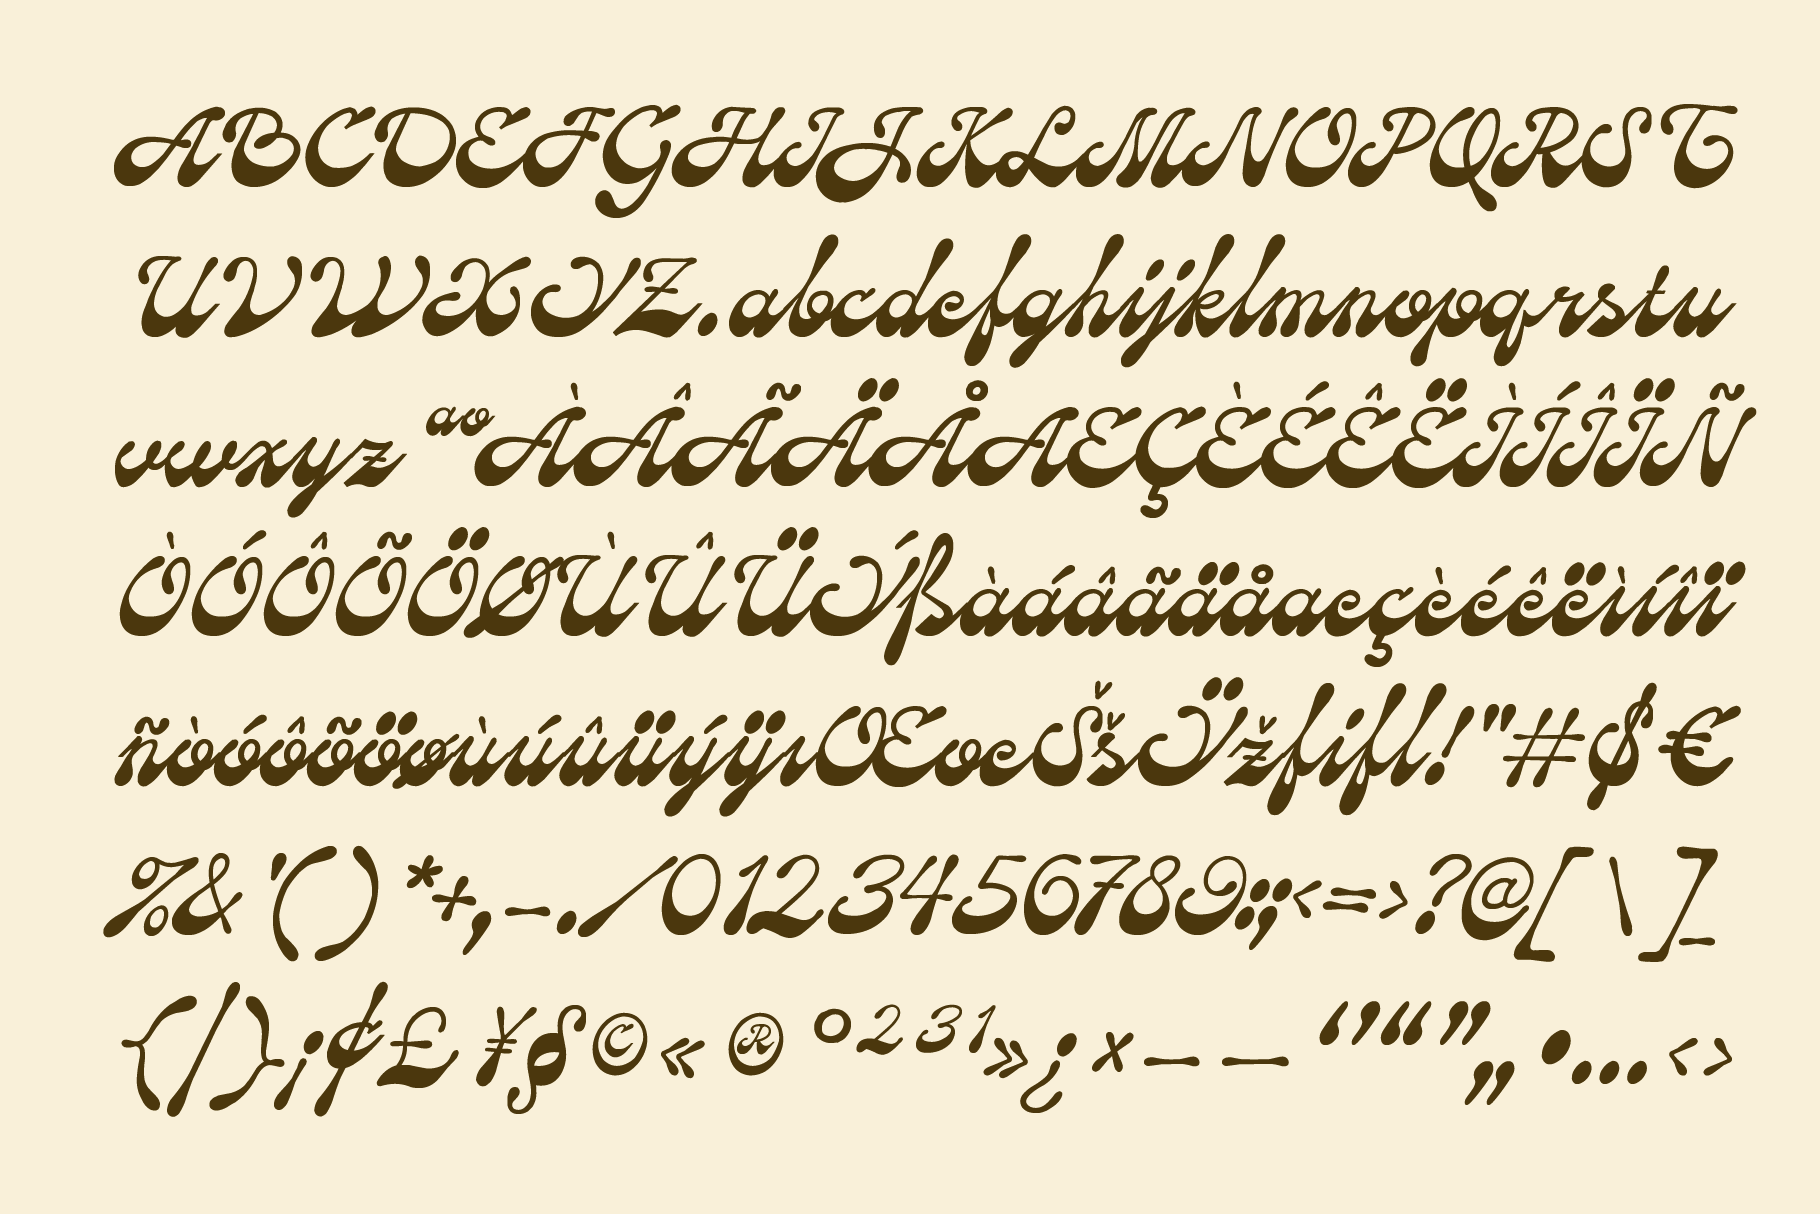 ABCDEFGHIJKLMNOPQRST
UVWXYZ.abcdefghijklmnopqrstu
vwxyz ªºÀÂÃÄÅÆÇÈÉÊËÌÍÎÏÑ
ÒÓÔÕÖØÙÛÜÝßàáâãäåæçèéêëìíîï
ñòóôõöøùúûüýÿıŒœŠšŸžfifl!"#$€
%&'()*+,-./0123456789:;<=>?@[\]_
{|}¡¢£¥§©«®°²³¹»¿×–—‘’“”„•…‹›